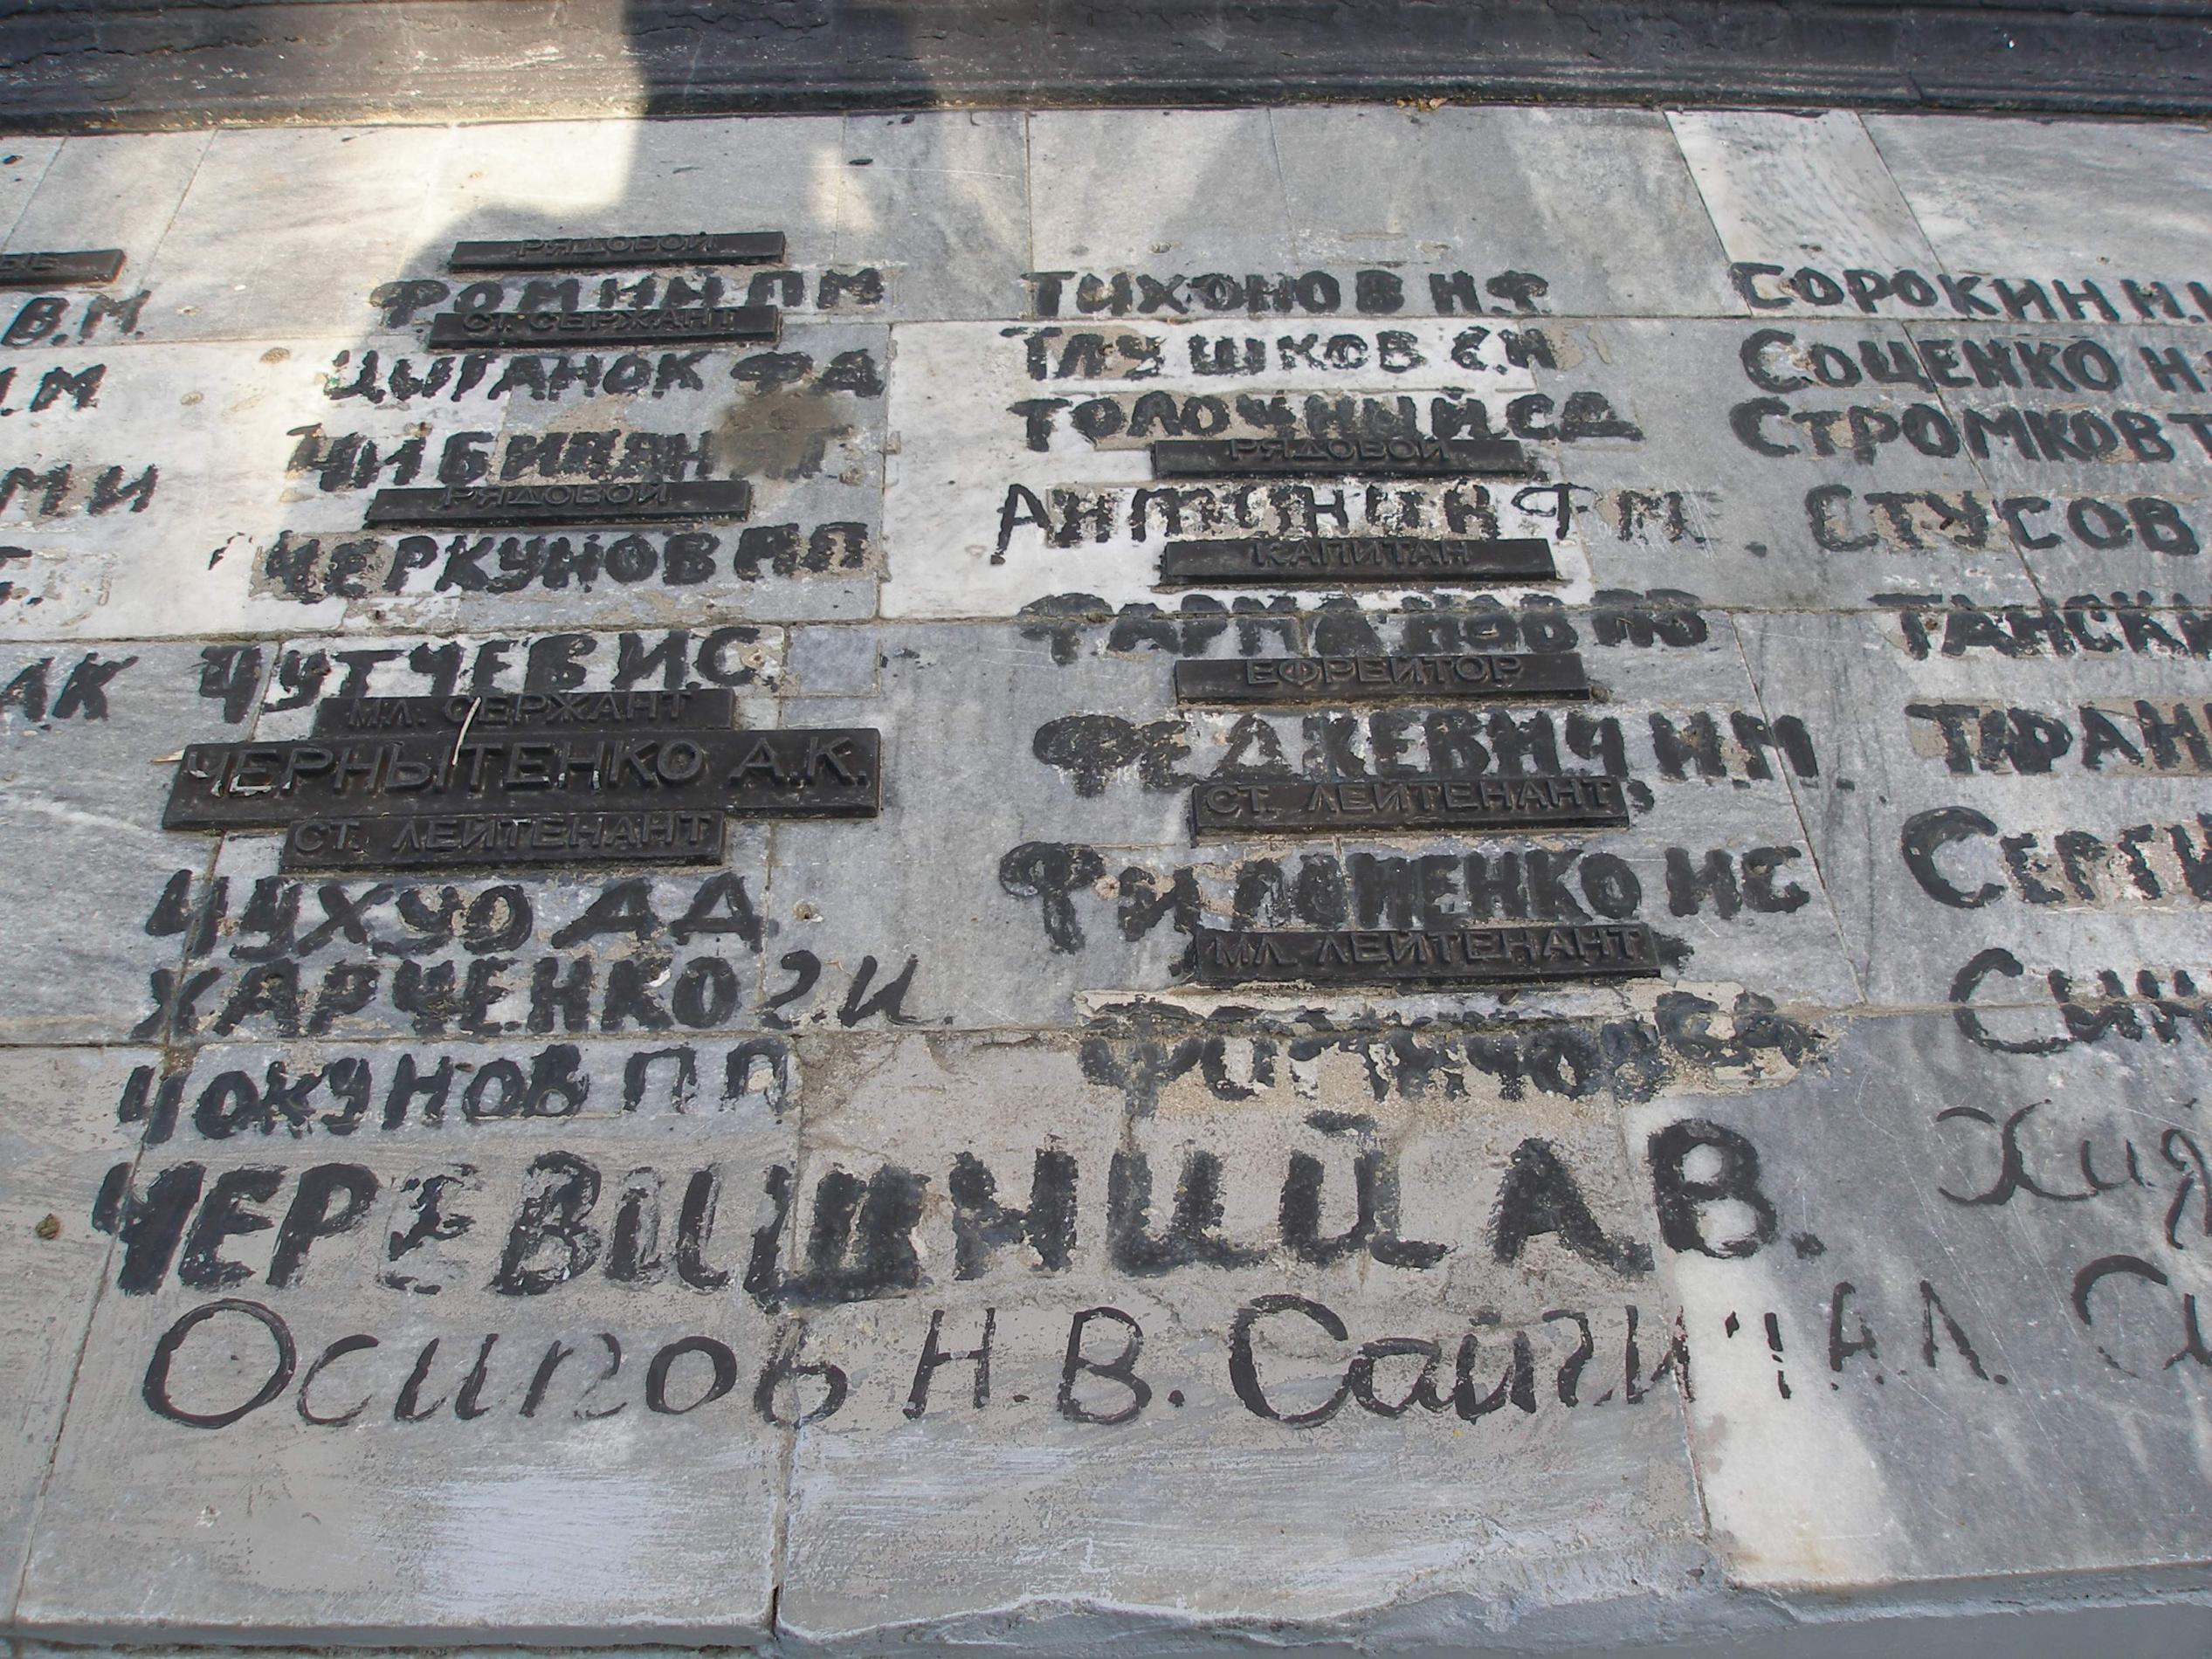 В.М.
М
МИ
АК
РЯДОВОЙ
ФОМИН П М
СТ. СЕРЖАНТ
ЦЫГАНОК Ф Д
РЯДОВОЙ
ЧЕРКУНОВ Н П
ЧУТЧЕВ И.С.
МЛ. СЕРЖАНТ
ЧЕРНЫТЕНКО А.К.
СТ. ЛЕЙТЕНАНТ
ЧУХУО Д Д
ХАРЧЕНКО Г.И.
ЧОКУНОВ П П
ТИХОНОВ Н Ф
ТЛУШКОВ С.Н
ТОЛОЧНЫЙ С Д
РЯДОВОЙ
АНТОНИН Ф М
КАПИТАН
ФАРМАНОВ П О
ЕФРЕЙТОР
ФЕДКЕВИЧ И М.
СТ. ЛЕЙТЕНАНТ
ФИЛОНЕНКО И С
МЛ. ЛЕЙТЕНАНТ
СОРОКИН И.
СОЦЕНКО Н
СТРОМКОВ Т
СТУСОВ
ТАНСК
ТАРАН
СЕРГИ
СИН
ЧЕРЕВИШНИЙ А В.
Осипов Н.В. А.Л.